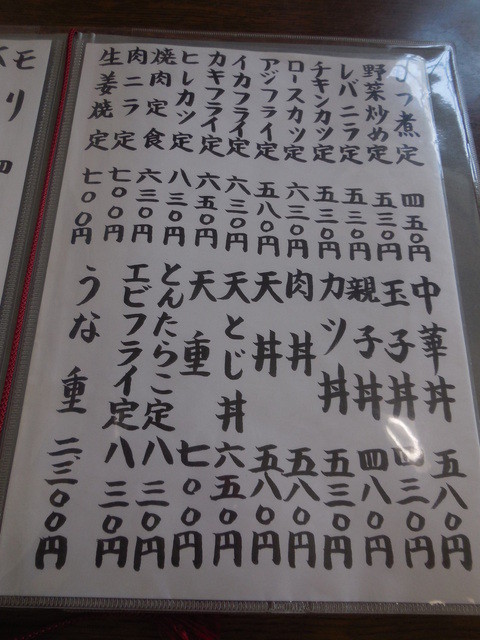 つ煮定 四五〇円
野菜炒め定 五三〇円
レバニラ定 五三〇円
チキンカツ定 五三〇円
ロースカツ定 六三〇円
アジフライ定 五八〇円
イカフライ定 六三〇円
カキフライ定 六五〇円
ヒレカツ定 八三〇円
焼肉定食 六三〇円
肉ニラ定 七〇〇円
生姜焼定 七〇〇円
中華丼 五八〇円
玉子丼 四三〇円
親子丼 四八〇円
カツ丼 五三〇円
肉丼 五八〇円
天丼 五八〇円
天とじ丼 六五〇円
天重 七〇〇円
とんたらこ定 八三〇円
エビフライ定 八三〇円
うな重 二、三〇〇円
モリ